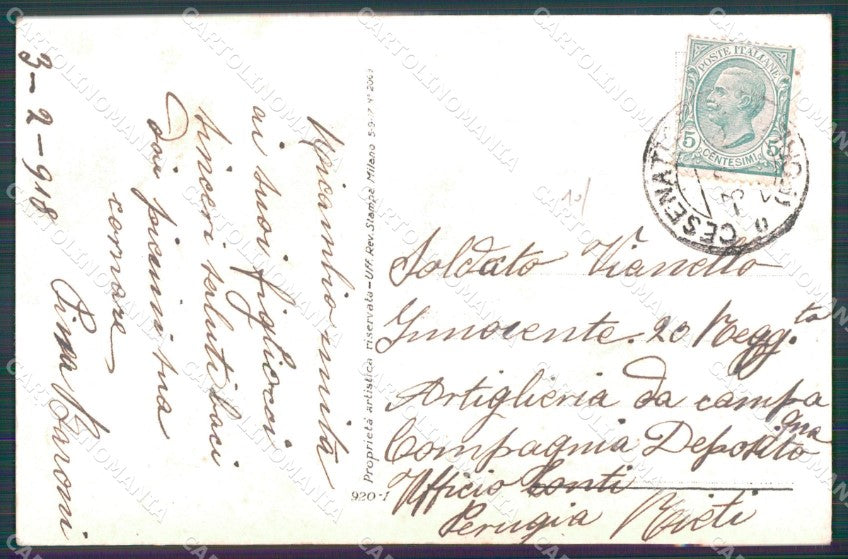 3-2-918
Ricambio unita
ai suoi figliocci
sinceri saluti baci
dai piccini sua
comare
Pina Baroni
Proprietà artistica riservata - Uff. Rev. Stampa Milano 5-9-17 Nº 2009
920-1
POSTE ITALIANE
5 CENTESIMI 5
CESENATICO
Soldato Vianello
Innocente. 20 Regg.to
Artiglieria da campagna
Compagnia Deposito
Ufficio Conti
Perugia Rieti
CARTOLINOMANIA